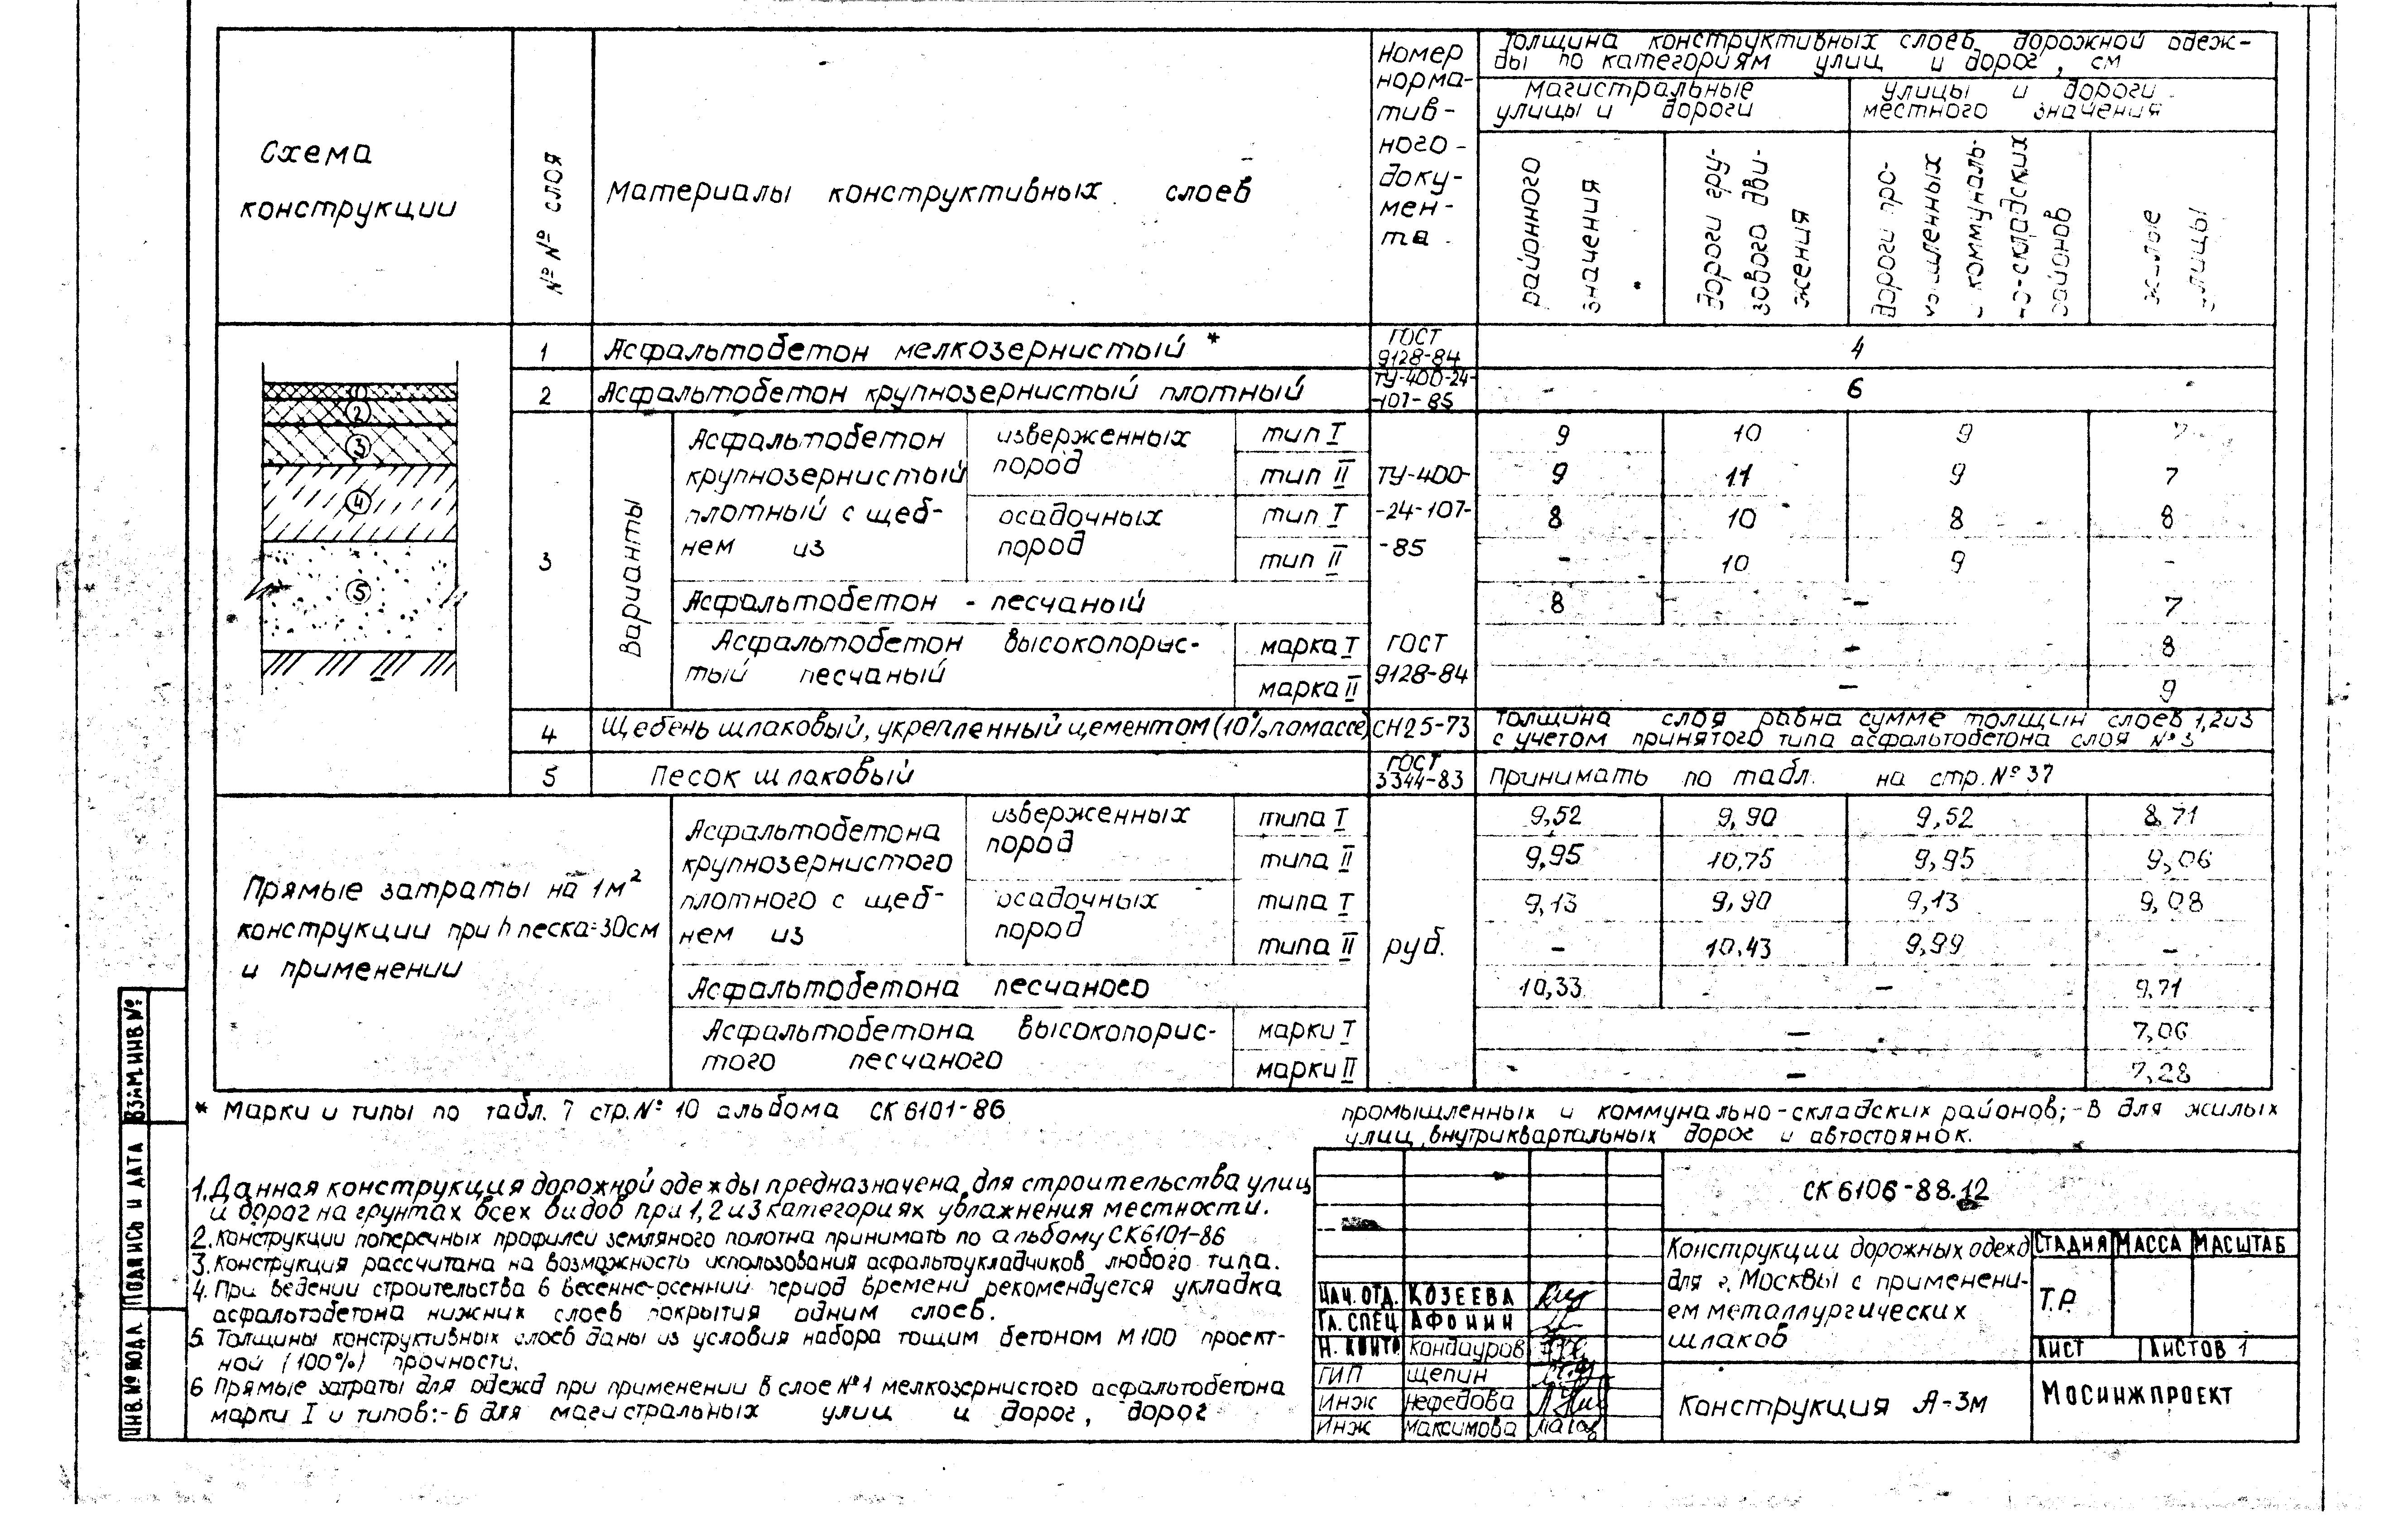 Схема
конструкции
№№ слоя
Материалы конструктивных слоев
Номер
норма-
тив-
ного
доку-
мен-
та
Толщина конструктивных слоев дорожной одеж-
ды по категориям улиц и дорог, см
магистральные
улицы и дороги
улицы и дороги
местного значения
районного
значения
дороги гру-
зового дви-
жения
дороги про-
мышленных
и коммуналь-
но-складских
районов
жилые
улицы
1 Асфальтобетон мелкозернистый * ГОСТ 9128-84 4
2 Асфальтобетон крупнозернистый плотный ТУ-400-24-107-85 6
3
Варианты
Асфальтобетон
крупнозернистый
плотный с щеб-
нем из
изверженных
пород
осадочных
пород
ТУ-400-
-24-107-
-85
тип I 9 10 9 7
тип II 9 11 9 7
тип I 8 10 8 8
тип II - 10 9 -
Асфальтобетон - песчаный 8 - 7
Асфальтобетон высокопорис-
тый песчаный
ГОСТ
9128-84
марка I - 8
марка II - 9
4 Щебень шлаковый, укрепленный цементом (10% по массе) СН25-73 Толщина слоя равна сумме толщин слоев 1,2и3
с учетом принятого типа асфальтобетона слоя №3
5 Песок шлаковый ГОСТ 3344-83 принимать по табл. на стр. №37
Прямые затраты на 1м²
конструкции при h песка=30см
и применении
Асфальтобетона
крупнозернистого
плотного с щеб-
нем из
изверженных
пород
осадочных
пород
руб.
типа I 9,52 9,90 9,52 8,71
типа II 9,95 10,75 9,95 9,06
типа I 9,13 9,90 9,13 9,08
типа II - 10,43 9,99 -
Асфальтобетона песчаного 10,33 - 9,71
Асфальтобетона высокопорис-
того песчаного
марки I - 7,06
марки II - 7,28
* Марки и типы по табл. 7 стр. № 10 альбома СК 6101-86
1. Данная конструкция дорожной одежды предназначена для строительства улиц
и дорог на грунтах всех видов при 1,2 и 3 категориях увлажнения местности.
2. Конструкции поперечных профилей земляного полотна принимать по альбому СК6101-86
3. Конструкция рассчитана на возможность использования асфальтоукладчиков любого типа.
4. При ведении строительства в весенне-осенний период времени рекомендуется укладка
асфальтобетона нижних слоев покрытия одним слоев.
5. Толщины конструктивных слоев даны из условия набора тощим бетоном М100 проект-
ной (100%) прочности.
6 Прямые затраты для одежд при применении в слое №1 мелкозернистого асфальтобетона
марки I и типов:-Б для магистральных улиц и дорог, дорог
промышленных и коммунально-складских районов;-В для жилых
улиц, внутриквартальных дорог и автостоянок.
СК 6106-88.12
Конструкции дорожных одежд
для г. Москвы с применени-
ем металлургических
шлаков
СТАДИЯ МАССА МАСШТАБ
Т.Р.
ЛИСТ ЛИСТОВ 1
Конструкция А-3м
МОСИНЖПРОЕКТ
НАЧ. ОТД. КОЗЕЕВА
ГЛ. СПЕЦ АФОНИН
Н. КОНТР Кондауров
ГИП Щепин
Инж Нефедова
Инж Максимова
ВЗАМ. ИНВ №
ПОДПИСЬ И ДАТА
ИНВ. № ПОДЛ
1
2
3
4
5